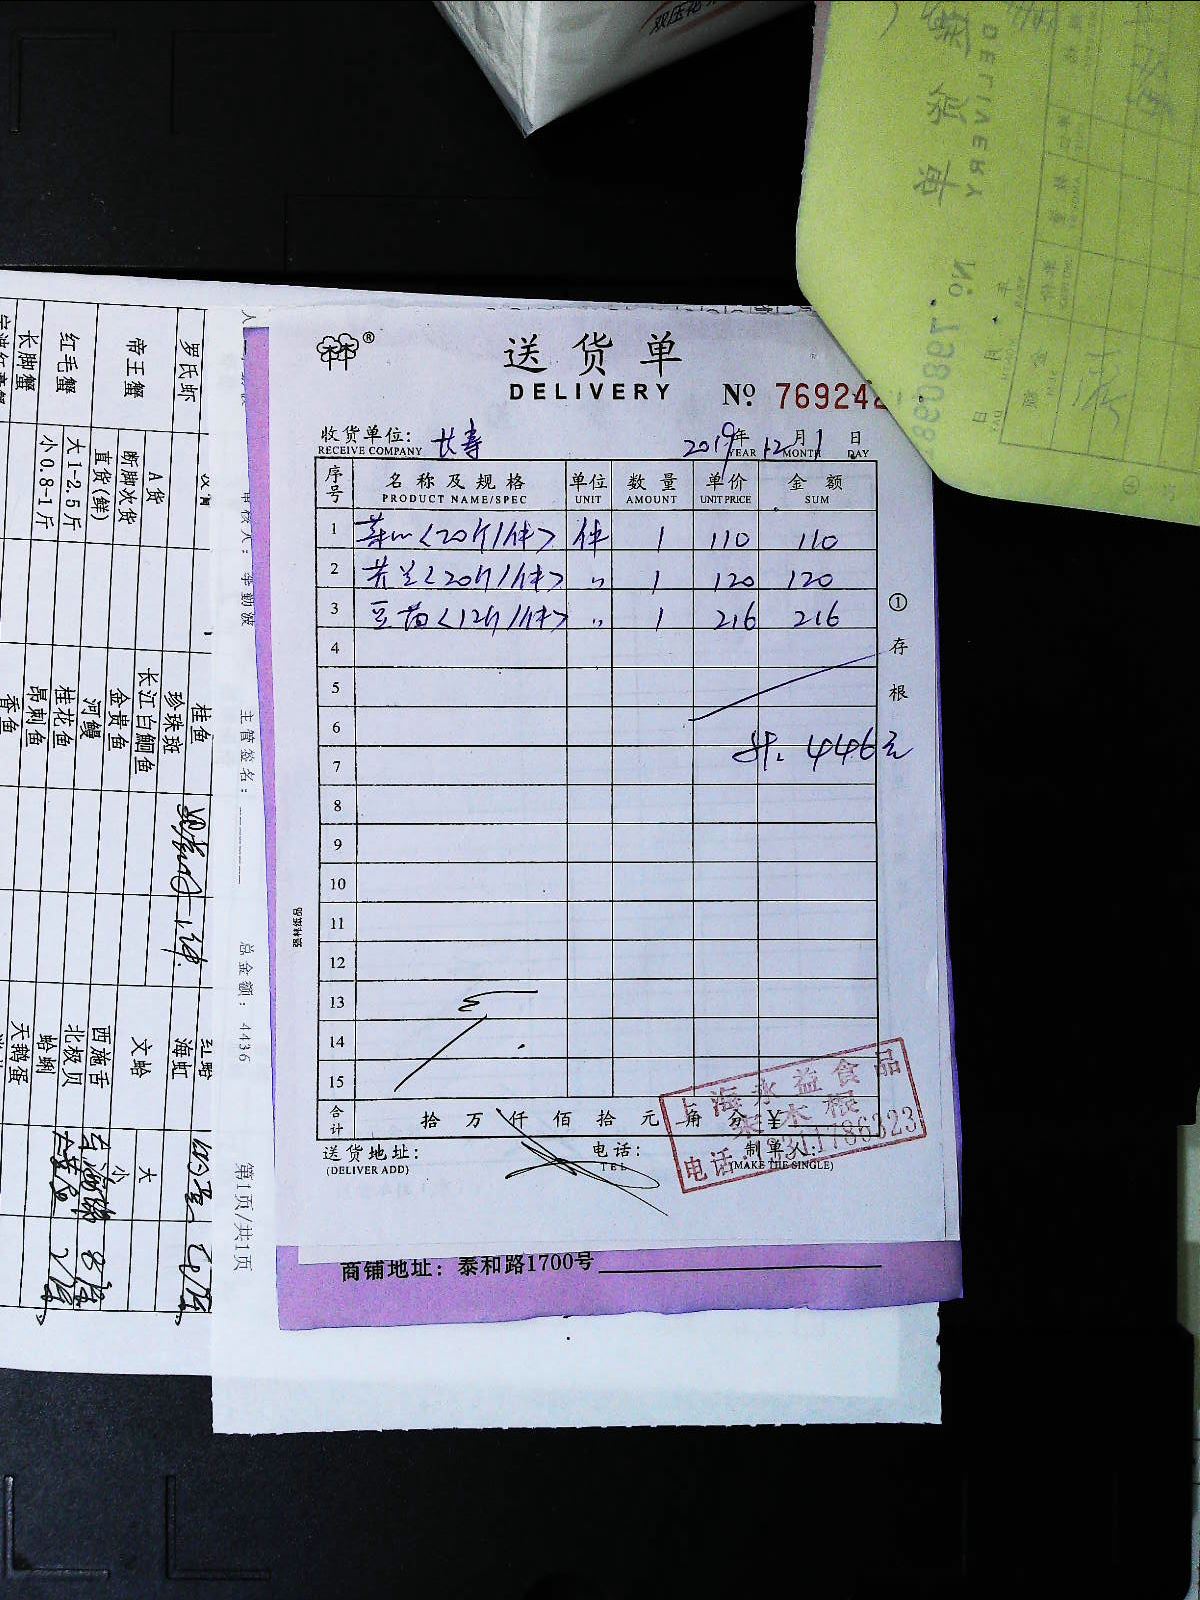 送货单
DELIVERY
№ 769242
收货单位： 长寿
RECEIVE COMPANY
2019年 12月 1日
YEAR MONTH DAY
序号 名称及规格 单位 数量 单价 金额
PRODUCT NAME/SPEC UNIT AMOUNT UNIT PRICE SUM
1 菜心<20斤/件> 件 1 110 110
2 芥兰<20斤/件> 〃 1 120 120
3 豆苗<12斤/件> 〃 1 216 216
4
5
6
7 共：446元
8
9
10
11
12
13
14
15
合计 拾 万 仟 佰 拾 元 角 分 ¥
送货地址： 电话： 制单人：
(DELIVER ADD) TEL (MAKE THE SINGLE)
①存根
强林纸品
上海永益食品
电话
商铺地址：泰和路1700号
罗氏虾
帝王蟹
A货
断脚次货
直货(鲜)
红毛蟹
大1-2.5斤
小0.8-1斤
长脚蟹
桂鱼
珍珠斑
长江白鮰鱼
金贵鱼
河鳗
桂花鱼
昂刺鱼
香鱼
海虹
文蛤
大
小
西施舌
北极贝
蛤蜊
天鹅蛋
审核人：李勤波
主管签名：
总金额：4436
第1页/共1页
送货单
DELIVERY
№
年 月 日